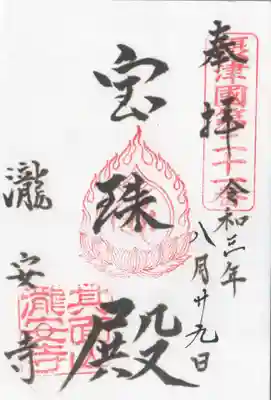 奉拝
摂津國第二十一番
令和三年
八月廿九日
宝珠殿
瀧安寺
箕面山
瀧安寺